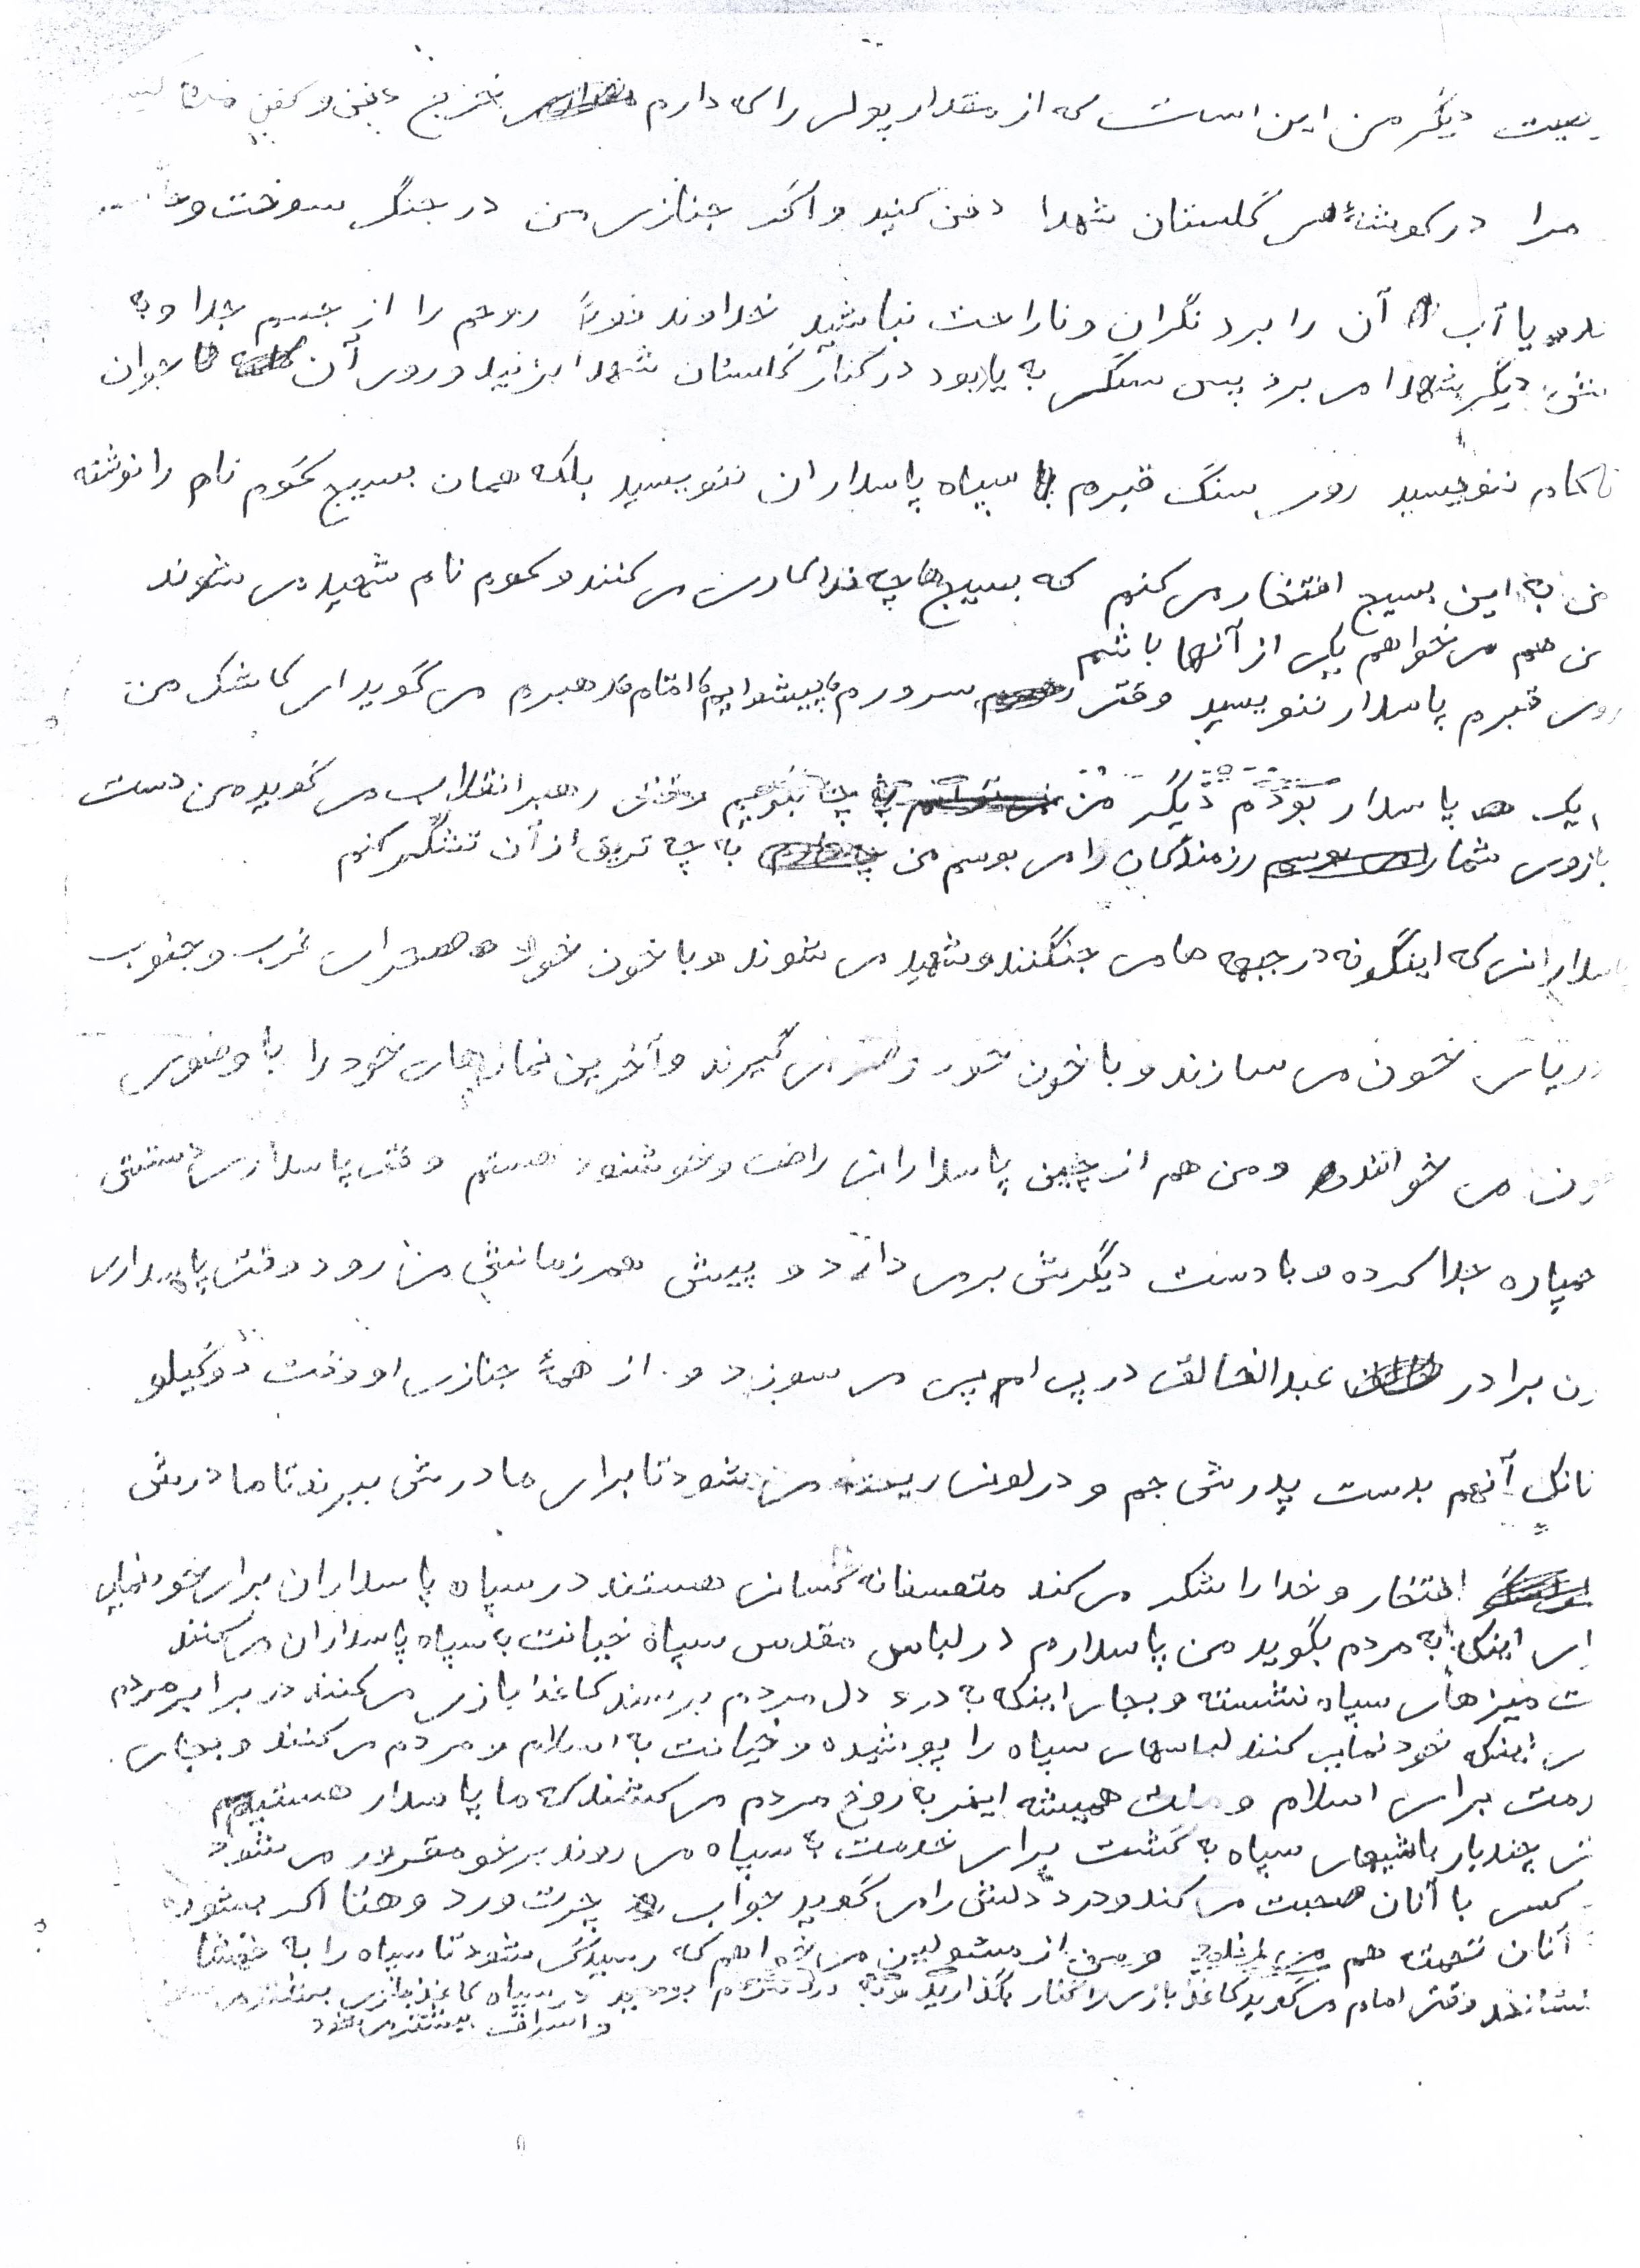 دیگر من این است که از مقدار پولی را که دارم خرج دفن و کفن
مرا در گوشهٔ گلستان شهدا دفن کنید و اگر جنازی من در جنگ سوخت و
یا آب آن را برد نگران و ناراحت نباشید خداوند روحم را از جسم جدا و به
دیگر شهدا می برد پس سنگی به یادبود در کنار گلستان شهدا بزنید و روی آن جوان
ناکام ننویسید روی سنگ قبرم سپاه پاسداران ننویسید بلکه همان بسیج گموم نام را نوشته
به این بسیج افتخار می کنم که بسیج ها چه فداکاری می کنند و گموم نام شهید می شوند
هم می خواهم یکی از آنها باشم
قبرم پاسدار ننویسید وقتی سرورم پیشوایم امام رهبرم می گوید ای کاشک من
یک پاسدار بودم دیگر من وقتی رهبر انقلاب می گوید من دست
بازوی شما رزمندگان را می بوسم من به چه تریق از آن تشگر کنم
که اینگونه در جبهه ها می جنگند و شهید می شوند و با خون خود صحرای غرب و جنوب
خون می سازند و با خون خود می گیرند و آخرین نمازهای خود را با وضوی
می خوانند و من هم از چنین پاسدارانی راضی و خوشنود هستم وقتی پاسداری دستش
جدا کرده و با دست دیگرش بر می دارد و پیش همرزمانش می رود وقتی پاسداری
برادر عبدالخالق در پی ام پی می سوزد و از همهٔ جنازی او دوکیلو
آنهم بدست پدرش جم و در لونی ریخته می شود تا برای مادرش ببرند تا مادرش
افتخار و خدا را شکر می کند متعسفانه کسانی هستند در سپاه پاسداران برای خودنمایی
اینکه به مردم بگوید من پاسدارم در لباس مقدس سپاه خیانت به سپاه پاسداران می کنند
میزهای سپاه نشسته و بجای اینکه به درد دل مردم برسند کاغذ بازی می کنند در برابر مردم
اینکه خودنمایی کنند لباسهای سپاه را پوشیده و خیانت به اسلام و مردم می کنند و بجای
برای اسلام و ملت همیشه اینر به روخ مردم می کشند که ما پاسدار هستیم
چند بار ماشینهای سپاه به گشت برای خدمت به سپاه می روند
کسی با آنان صحبت می کند و درد دلش را می گوید جواب چرت و
آنان تهمت هم و من از مسئولین می خواهم که رسیدگی شود تا سپاه را به
وقتی امام می گوید کاغذ بازی را کنار بگذارید در سپاه کاغذ بازی بیشتر
و اسراف بیشتر می شود